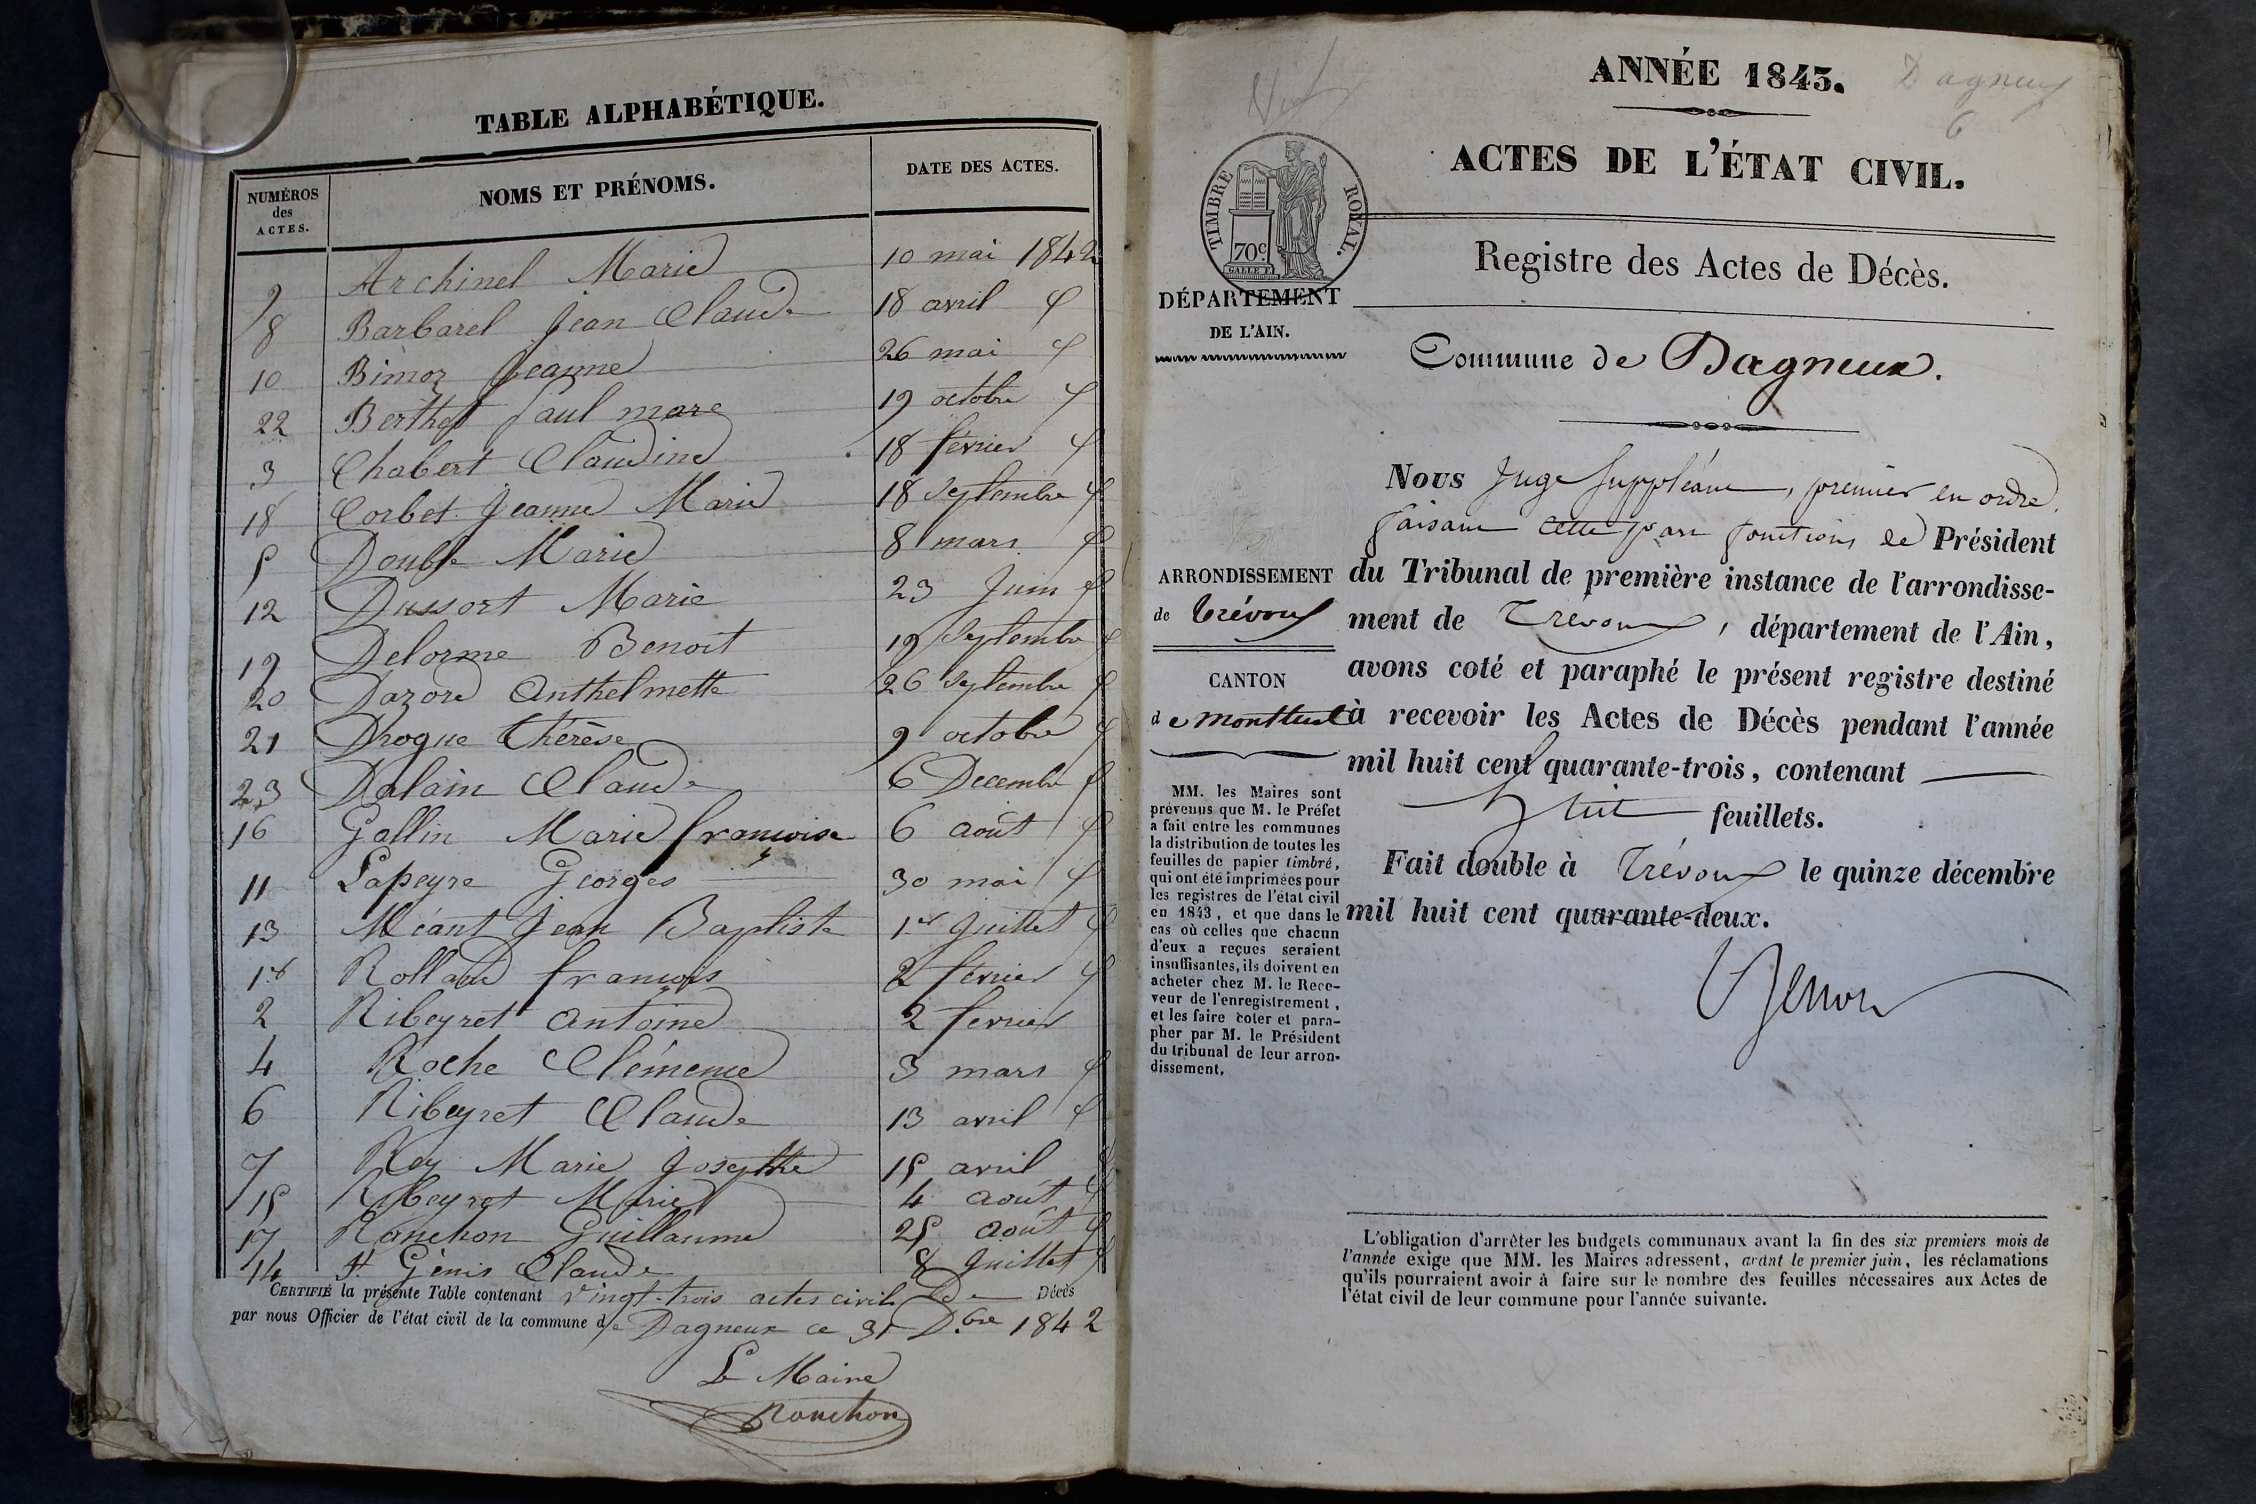 TABLE ALPHABÉTIQUE.
NUMÉROS des ACTES. NOMS ET PRÉNOMS. DATE DES ACTES.
9 Archinel Marie 10 mai 1842
8 Barbarel Jean Claude 18 avril
10 Bimoz Jeanne 26 mai
22 Berthet Paul marc 19 octobre
3 Chabert Claudine 18 février
18 Corbet Jeanne Marie 18 Septembre
5 Double Marie 8 mars
12 Dussort Marie 23 Juin
19 Delorme Benoit 19 Septembre
20 Dazord Anthelmette 26 Septembre
21 Drogue thérèse 9 octobre
23 Dalain Claude 6 Decembre
16 Gallin Marie françoise 6 août
11 Lapeyre Georges 30 mai
13 Méant Jean Baptiste 1er Juillet
1er Rolland françois 2 février
2 Ribeyret antoine 2 fevrier
4 Roche Clémence 3 mars
6 Ribeyret Claude 13 avril
7 Rey Marie Josephte 15 avril
15 Ribeyret Marie 4 août
17 Ronchon Guillaume 25 août
14 St Génis Claude 8 Juillet
CERTIFIÉ la présente Table contenant vingt-trois actes civils de Décès
par nous Officier de l'état civil de la commune de Dagneux ce 31 Dbre 1842
Le Maire
Ronchon
ANNÉE 1843. Dagneux
6
ACTES DE L'ÉTAT CIVIL.
TIMBRE ROYAL.
70c
Registre des Actes de Décès.
DÉPARTEMENT
DE L'AIN.
Commune de Dagneux.
Nous Juge Suppléant, premier en ordre,
faisant cette part fonctions de Président
du Tribunal de première instance de l'arrondisse-
ment de Trévoux, département de l'Ain,
avons coté et paraphé le présent registre destiné
à recevoir les Actes de Décès pendant l'année
mil huit cent quarante-trois, contenant
huit feuillets.
Fait double à Trévoux le quinze décembre
mil huit cent quarante-deux.
ARRONDISSEMENT
de trévoux
CANTON
de montluel
MM. les Maires sont
prévenus que M. le Préfet
a fait entre les communes
la distribution de toutes les
feuilles de papier timbré,
qui ont été imprimées pour
les registres de l'état civil
en 1843, et que dans le
cas où celles que chacun
d'eux a reçues seraient
insuffisantes, ils doivent en
acheter chez M. le Rece-
veur de l'enregistrement,
et les faire coter et para-
pher par M. le Président
du tribunal de leur arron-
dissement.
L'obligation d'arrêter les budgets communaux avant la fin des six premiers mois de
l'année exige que MM. les Maires adressent, avant le premier juin, les réclamations
qu'ils pourraient avoir à faire sur le nombre des feuilles nécessaires aux Actes de
l'état civil de leur commune pour l'année suivante.